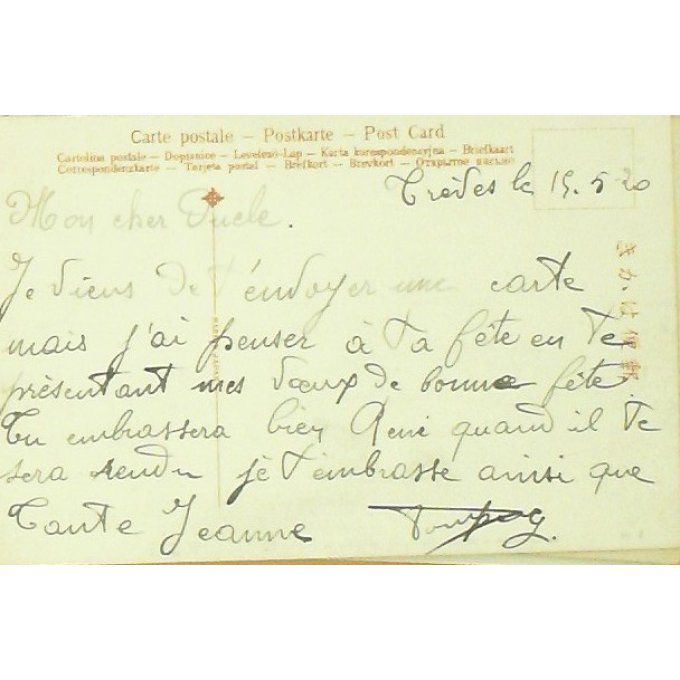 Carte postale – Postkarte – Post Card
Cartolina postale – Dopisnice – Levelező-Lap – Karta korespondencyjna – Briefkaart
Correspondenzkarte – Tarjeta postal – Brefkort – Brevkort – Открытое письмо
Trèves le 15.5.20
Mon cher Oncle.
Je viens de t'envoyer une carte
mais j'ai penser à ta fête en te
présentant mes vœux de bonne fête
Tu embrassera bien René quand il te
sera rendu je t'embrasse ainsi que
Tante Jeanne
きかは便郵